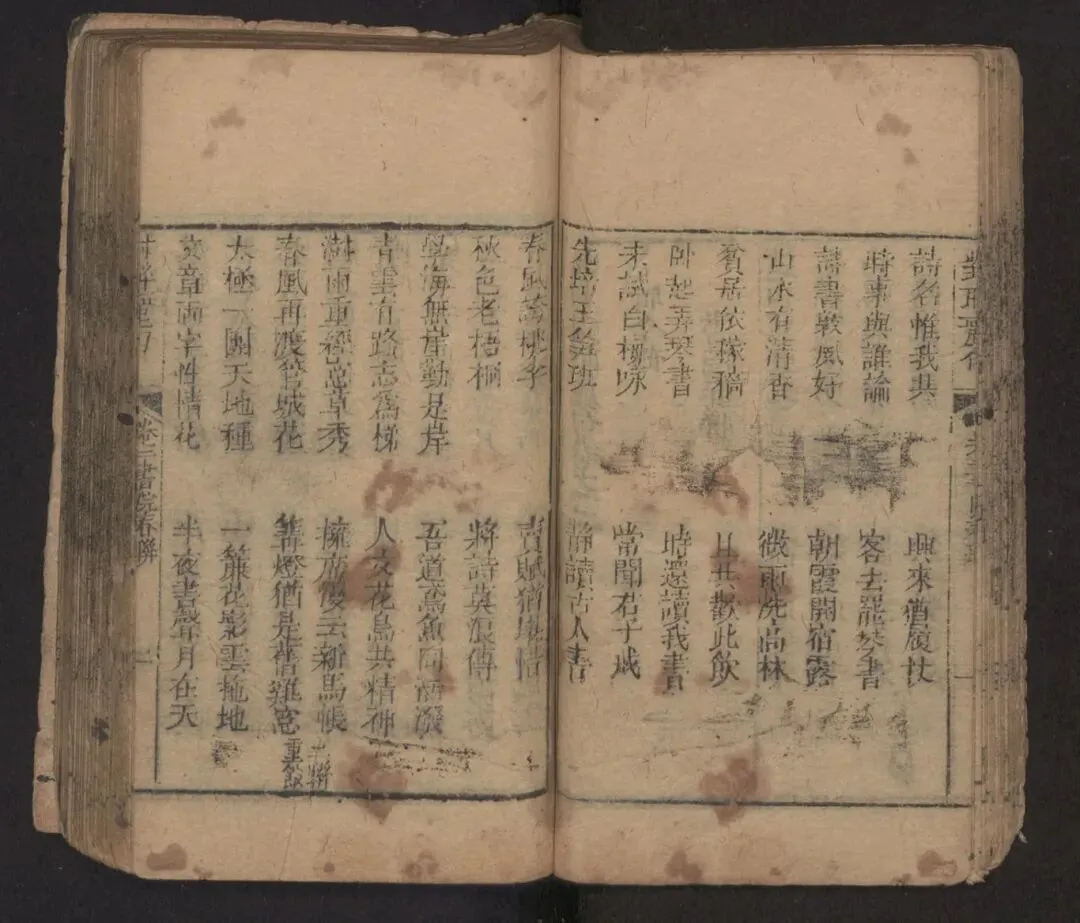 詩名惟我共 興來猶
時事與誰論 客去罷琴書
詩書敦風好 朝霞開宿霧
山水有清香 微雨洗高林
貧居依稼穡 且共歡此飲
卧起弄琴書 時還讀我書
未試白 咏 當聞君子
先培玉筍班 靜讀古人書
春風 桃李 賦猶堪惜
秋色老梧桐 將詩莫浪傳
學海無崖勤是岸 吾道鳶魚同活潑
青雲有路志為梯 人文花鳥共精神
澍雨重經芸草秀 新馬帳
春風再渡管城花 篝燈猶是舊雞窓
太極一團天地種 一簾花影雲拖地
文章兩字性情花 半夜書聲月在天
書院春聯 二